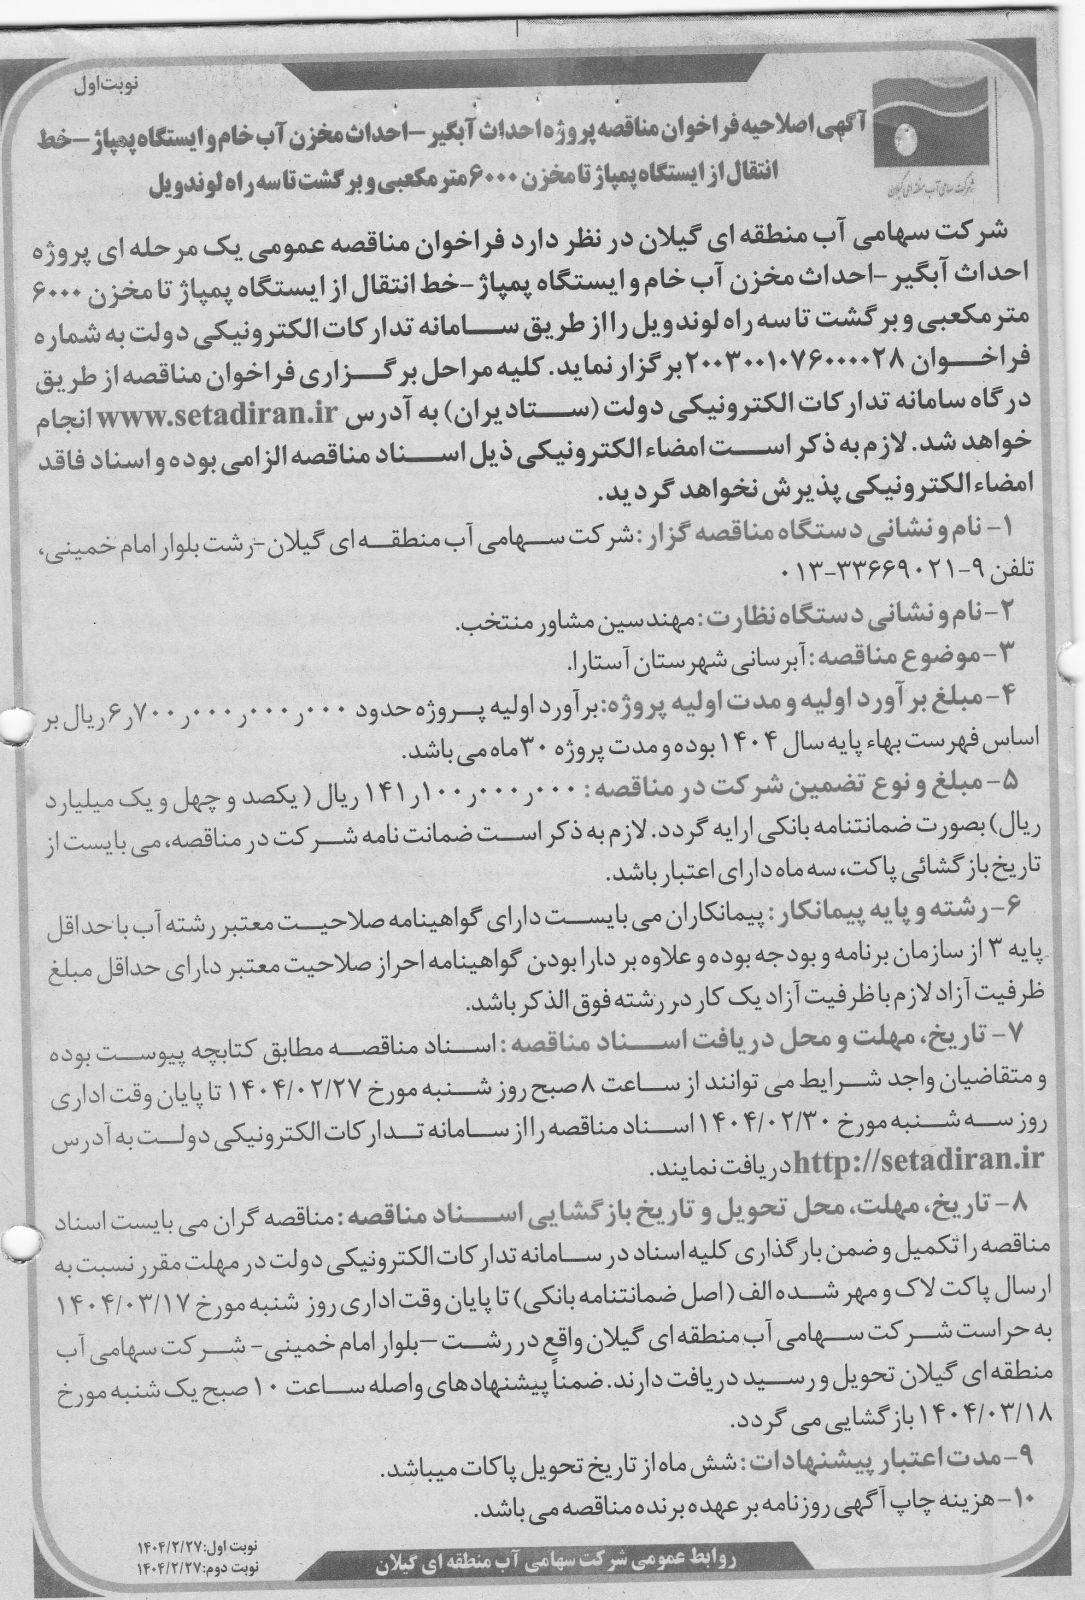 نوبت اول
آگهی اصلاحیه فراخوان مناقصه پروژه احداث آبگیر –احداث مخزن آب خام و ایستگاه پمپاژ –خط
انتقال از ایستگاه پمپاژ تا مخزن ۶۰۰۰ متر مکعبی و برگشت تا سه راه لوندویل
شرکت سهامی آب منطقه ای گیلان
شرکت سهامی آب منطقه ای گیلان در نظر دارد فراخوان مناقصه عمومی یک مرحله ای پروژه
احداث آبگیر –احداث مخزن آب خام و ایستگاه پمپاژ –خط انتقال از ایستگاه پمپاژ تا مخزن ۶۰۰۰
متر مکعبی و برگشت تا سه راه لوندویل را از طریق سامانه تدارکات الکترونیکی دولت به شماره
فراخوان ۲۰۰۳۰۰۱۰۷۶۰۰۰۰۲۸ برگزار نماید. کلیه مراحل برگزاری فراخوان مناقصه از طریق
درگاه سامانه تدارکات الکترونیکی دولت (ستاد یران) به آدرس www.setadiran.ir انجام
خواهد شد. لازم به ذکر است امضاء الکترونیکی ذیل اسناد مناقصه الزامی بوده و اسناد فاقد
امضاء الکترونیکی پذیرش نخواهد گردید.
۱- نام و نشانی دستگاه مناقصه گزار: شرکت سهامی آب منطقه ای گیلان-رشت بلوار امام خمینی،
تلفن ۹-۰۱۳-۳۳۶۶۹۰۲۱
۲-نام و نشانی دستگاه نظارت: مهندسین مشاور منتخب.
۳-موضوع مناقصه: آبرسانی شهرستان آستارا.
۴-مبلغ برآورد اولیه و مدت اولیه پروژه: برآورد اولیه پروژه حدود ۶٫۷۰۰٫۰۰۰٫۰۰۰٫۰۰۰ ریال بر
اساس فهرست بهاء پایه سال ۱۴۰۴ بوده و مدت پروژه ۳۰ ماه می باشد.
۵- مبلغ و نوع تضمین شرکت در مناقصه: ۱۴۱٫۱۰۰٫۰۰۰٫۰۰۰ ریال ( یکصد و چهل و یک میلیارد
ریال) بصورت ضمانتنامه بانکی ارایه گردد. لازم به ذکر است ضمانت نامه شرکت در مناقصه، می بایست از
تاریخ بازگشائی پاکت، سه ماه دارای اعتبار باشد.
۶-رشته و پایه پیمانکار: پیمانکاران می بایست دارای گواهینامه صلاحیت معتبر رشته آب با حداقل
پایه ۳ از سازمان برنامه و بودجه بوده و علاوه بر دارا بودن گواهینامه احراز صلاحیت معتبر دارای حداقل مبلغ
ظرفیت آزاد لازم با ظرفیت آزاد یک کار در رشته فوق الذکر باشد.
۷- تاریخ، مهلت و محل دریافت اسناد مناقصه: اسناد مناقصه مطابق کتابچه پیوست بوده
و متقاضیان واجد شرایط می توانند از ساعت ۸ صبح روز شنبه مورخ ۱۴۰۴/۰۲/۲۷ تا پایان وقت اداری
روز سه شنبه مورخ ۱۴۰۴/۰۲/۳۰ اسناد مناقصه را از سامانه تدارکات الکترونیکی دولت به آدرس
http://setadiran.ir دریافت نمایند.
۸- تاریخ، مهلت، محل تحویل و تاریخ بازگشایی اسناد مناقصه: مناقصه گران می بایست اسناد
مناقصه را تکمیل و ضمن بارگذاری کلیه اسناد در سامانه تدارکات الکترونیکی دولت در مهلت مقرر نسبت به
ارسال پاکت لاک و مهر شده الف (اصل ضمانتنامه بانکی) تا پایان وقت اداری روز شنبه مورخ ۱۴۰۴/۰۳/۱۷
به حراست شرکت سهامی آب منطقه ای گیلان واقع در رشت –بلوار امام خمینی- شرکت سهامی آب
منطقه ای گیلان تحویل و رسید دریافت دارند. ضمناً پیشنهادهای واصله ساعت ۱۰ صبح یک شنبه مورخ
۱۴۰۴/۰۳/۱۸ بازگشایی می گردد.
۹-مدت اعتبار پیشنهادات: شش ماه از تاریخ تحویل پاکات میباشد.
۱۰-هزینه چاپ آگهی روزنامه بر عهده برنده مناقصه می باشد.
نوبت اول: ۱۴۰۴/۲/۲۷
نوبت دوم: ۱۴۰۴/۲/۲۷
روابط عمومی شرکت سهامی آب منطقه ای گیلان